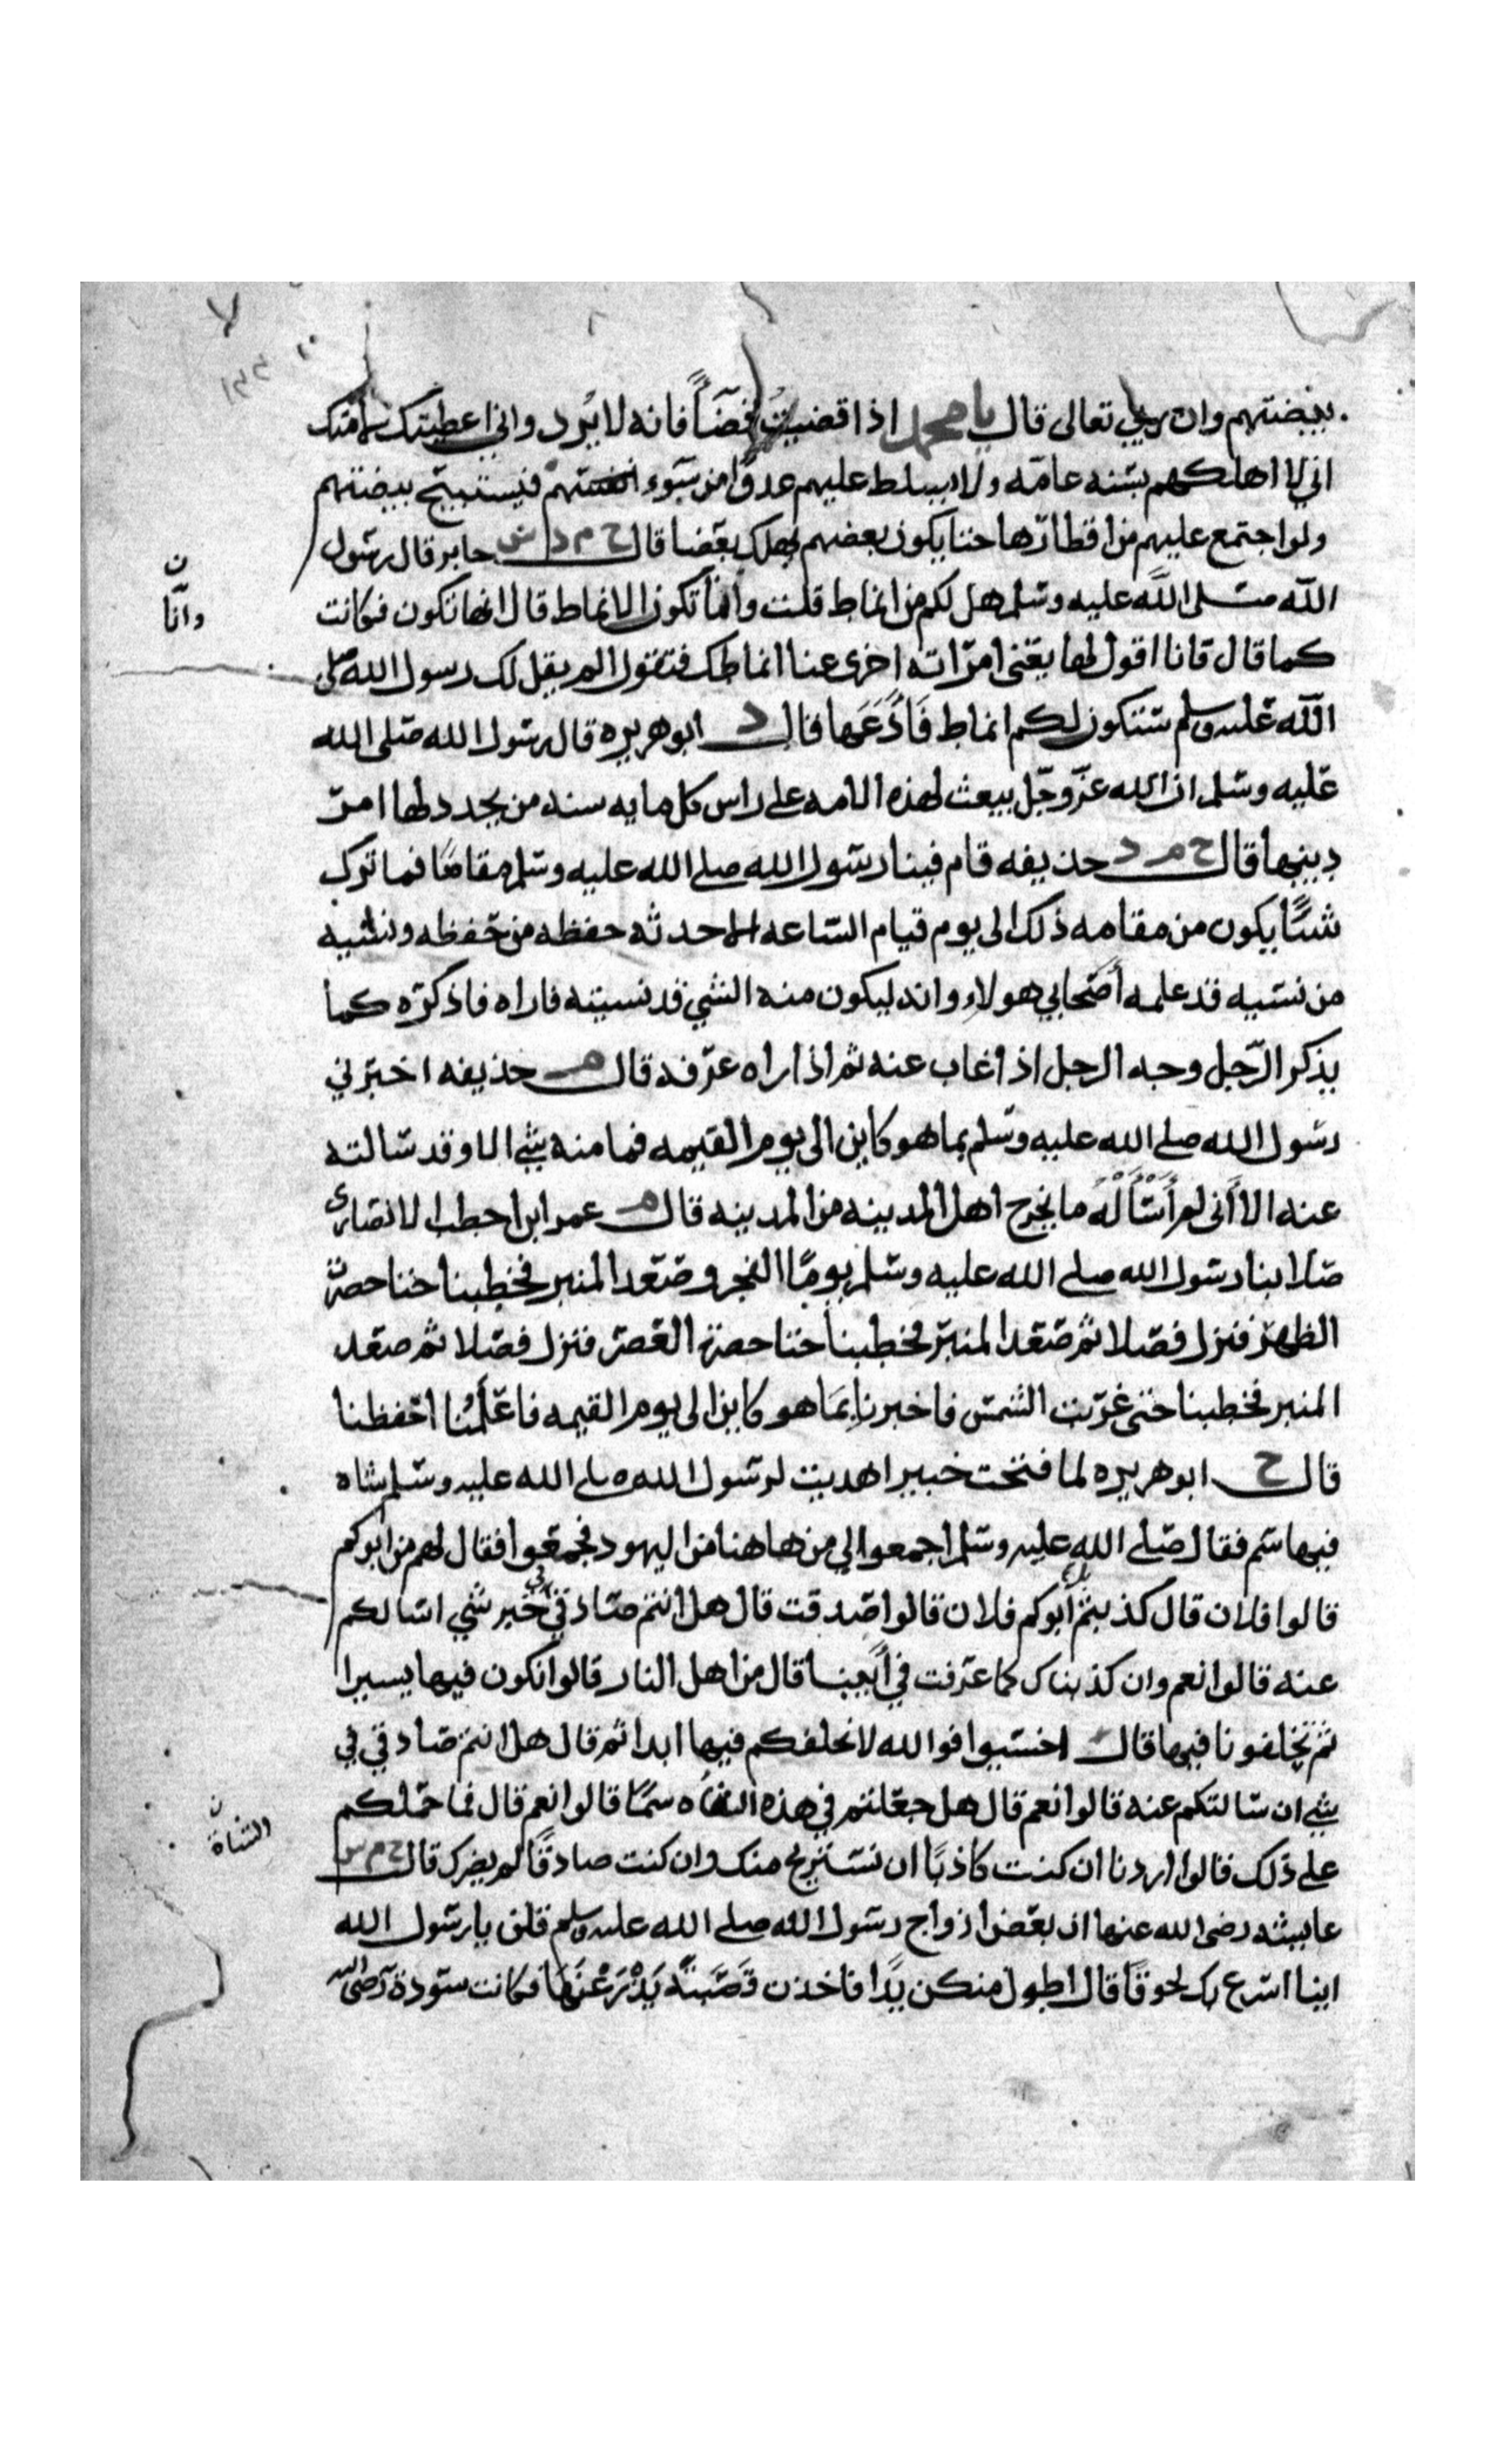 بيضتهم وان ربي تعالى قال يا محمد اذا قضيت قضآءً فانه لا يُرد واني اعطيتك لامتك
اني لا اهلكهم بسَنه عامّه ولا يسلط عليهم عدوًا من سوء انفسهم فيستبيح بيضتهم
ولو اجتمع عليهم من اقطارها حتا يكون بعضهم يهلك بعضا قال ح م د س جابر قال رسُول
اللّه صلى اللّه عليه وسَلم هل لكم من انماط قلت وانّا تكون الانماط قال انها تكون فكانت
كما قال فانا اقول لها يعني امرَاته اخرى عنا انماطك فتقول الم يقل لك رسول الله صلى
اللّه عليه وسلم ستكون لكم انماط فَأدَعَها قال د ابو هريره قال رسُول الله صَلى الله
عَليه وسَلم ان الله عزّ وجَل يبعث لهذه الامه على راس كل مايه سنه من يجدد لها امرَ
دينها قال ح م د حذيفه قام فينا رسُول الله صلى الله عليه وسَلم مقامًا فما ترك
شئًا يكون من مقامه ذلك الى يوم قيام السَاعه الا حدثه حفظه من حَفظه ونسَيه
من نسَيه قد علمه أصَحابي هولاء وانه ليكون منه الشي قد نسيته فاراه فاذكرَه كما
يذكر الرّجل وجه الرجل اذا غاب عنه ثم اذا راه عرَفه قال م حذيفه اخبرَني
رسُول الله صلى الله عليه وسَلم بما هو كاين الى يوم القيمه فما منه شي الا وقد سَالته
عنه الا أنى لم أَسْأَلْهُ ما يخرج اهل المدينه من المدينه قال م عمر ابن احطب الانصَارى
صَلا بنا رسُول الله صلى الله عليه وسَلم يومًا الفجر وصَعَد المنبر فخطبنا حتا حصرت
الظهرَ فنزل فصَلا ثم صَعَد المنبرَ فخطبنا حتا حصرت العَصرَ فنزل فصَلا ثم صعَد
المنبر فخطبنا حتى غرَبت الشمسَ فاخبرنا بِمَا هو كاين الى يوم القيمه فاعَلَمُنا احَفظنا
قال ح ابو هريره لما فتحت خيبر اهديت لرسَول الله صلى الله عليه وسَلم شاه
فيها سَم فقال صَلى الله عليه وسَلم اجمعوا لي من هاهنا من اليهود فجمعَوا فقال لهم من ابوكم
قالوا فلان قال كذبتم أبوكم فلان قالوا صَدقت قال هل انتم صَادقيَّ خبر شي اسَالكم
عنه قالوا نعم وان كذبناك كما عرَفت في أَبينا قال من اهل النار قالوا نكون فيها يسيرا
ثم تخلفونا فيها قال اخسَيوا فوالله لا نخلفكم فيها ابدا ثم قال هل انتم صَادقي في
شي ان سَالتكم عنه قالوا نعم قال هل جعَلتم في هذه الشاه سمًا قالوا نعم قال فما حمَلكم
على ذلك قالوا اردنا ان كنت كاذبًا ان نسَتريح منك وان كنت صادقًا لم يضرك قال ح م س
عايشه رضى الله عنها ان بعَض ازواج رسُول الله صلى الله عليه وسلم قلن يا رسَول الله
اينا اسَرع بك لحوقًا قال اطول منكن يدًا فاخذن قَصَبَةً يَذْرَعْنَهَا فكانت سَودة رضى الله
وانّا ن
الشاة ن